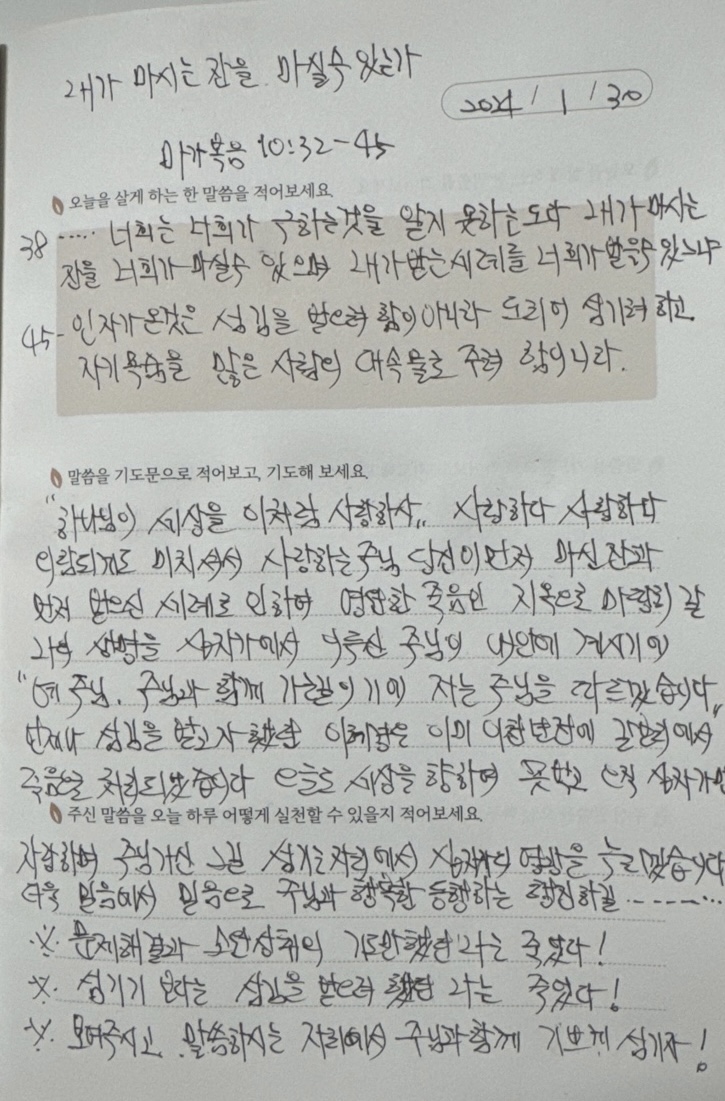 내가 마시는 잔을 마실수 있는가
2024 / 1 / 30
마가복음 10:32-45
오늘을 살게 하는 한 말씀을 적어보세요.
38 ···· 너희는 너희가 구하는것을 알지 못하는도다 내가 마시는
잔을 너희가 마실수 있으며 내가 받는 세례를 너희가 받을수 있느냐
45- 인자가 온것은 섬김을 받으려 함이 아니라 도리어 섬기려 하고
자기 목숨을 많은 사람의 대속물로 주려 함이니라.
말씀을 기도문으로 적어보고, 기도해 보세요.
"하나님이 세상을 이처럼 사랑하사" 사랑하다 사랑하다
외람되게도 미치셔서 사랑하는 주님 당신이 먼저 마신 잔과
먼저 받으신 세례로 인하여 영원한 죽음인 지옥으로 마땅히 갈
나의 생명을 십자가에서 이루신 주님이 내안에 계시기에
"예 주님. 주님과 함께 가는길이기에 저는 주님을 따르겠습니다"
언제나 섬김을 받고자 했던 이 은 이미 이천년전에 갈보리에서
죽음으로 처리되었습니다 오늘도 세상을 향하여 못박고 오직 십자가만
주신 말씀을 오늘 하루 어떻게 실천할 수 있을지 적어보세요.
자랑하며 주님가신 그길 섬기는 자리에서 십자가의 을 누리겠습니다
더욱 믿음에서 믿음으로 주님과 행복한 동행하는 행진하길 ··········
※. 문제해결과 소원성취의 기도만했던 나는 죽었다!
※. 섬기기 보다는 섬김을 받으려 했던 나는 죽었다!
※. 보여주시고 말씀하시는 자리에서 주님과 함께 기쁘게 섬기자!